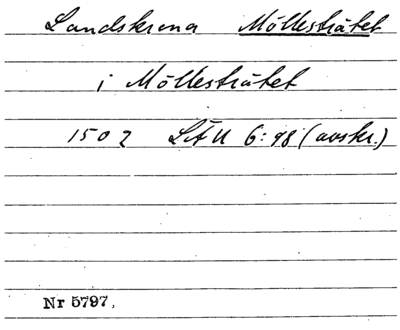 Landskrona Möllestrâtet
i Möllestrâtet
1502 LÄU 6:98 (avskr.)
Nr 5797.